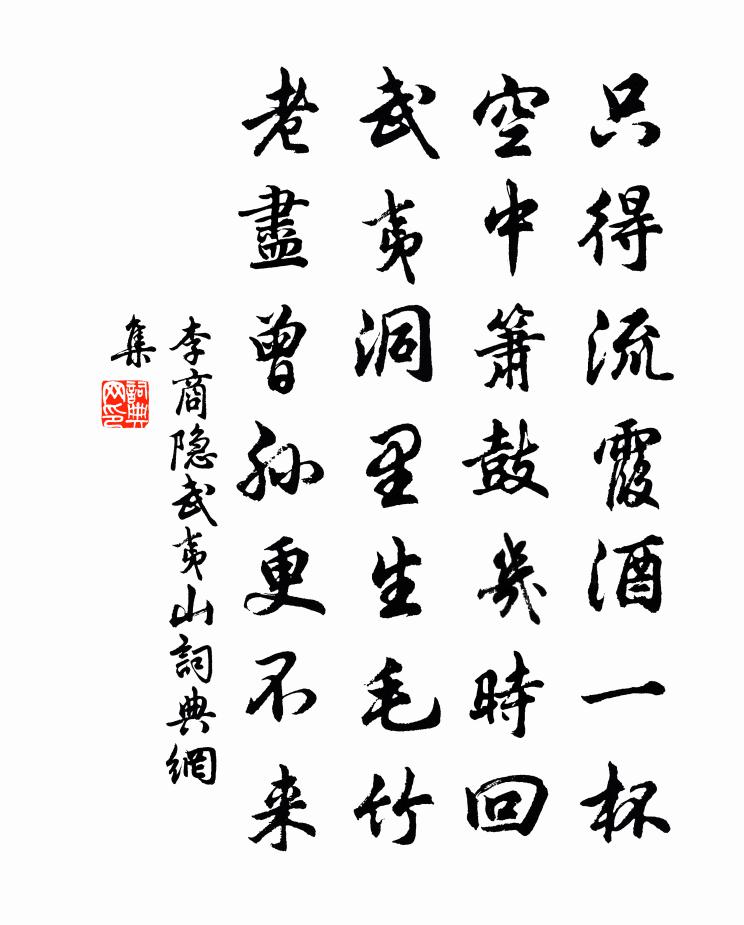 只得流霞酒一杯
空中簫鼓幾時回
武夷洞里生毛竹
老盡曾孙更不来
李商隐武夷山詞典網
集
詞典
网印